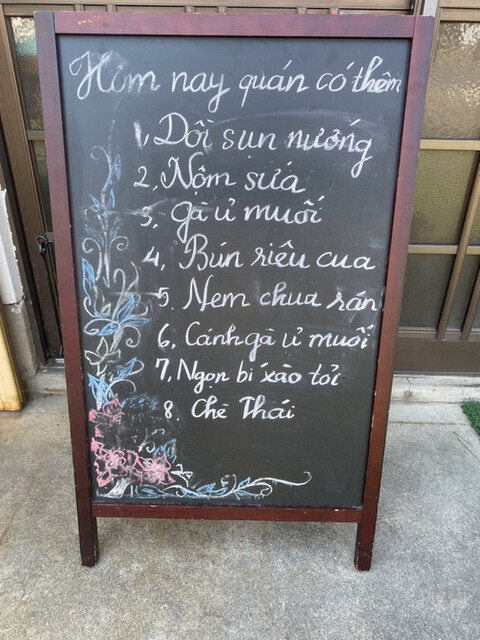 Hôm nay quán có thêm
1, Dồi sụn nướng
2, Nộm sứa
3, gà ủ muối
4, Bún riêu cua
5. Nem chua rán
6, Cánh gà ủ muối
7, Ngọn bí xào tỏi
8. Chè Thái